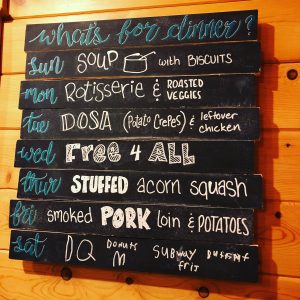 what's for dinner?
sun SOUP with BISCUITS
mon Rotisserie & ROASTED VEGGIES
tue DOSA (Potato Crepes) & leftover chicken
wed FREE 4 ALL
thur STUFFED acorn squash
fri smoked PORK loin & POTATOES
sat DQ DONUTS M SUBWAY